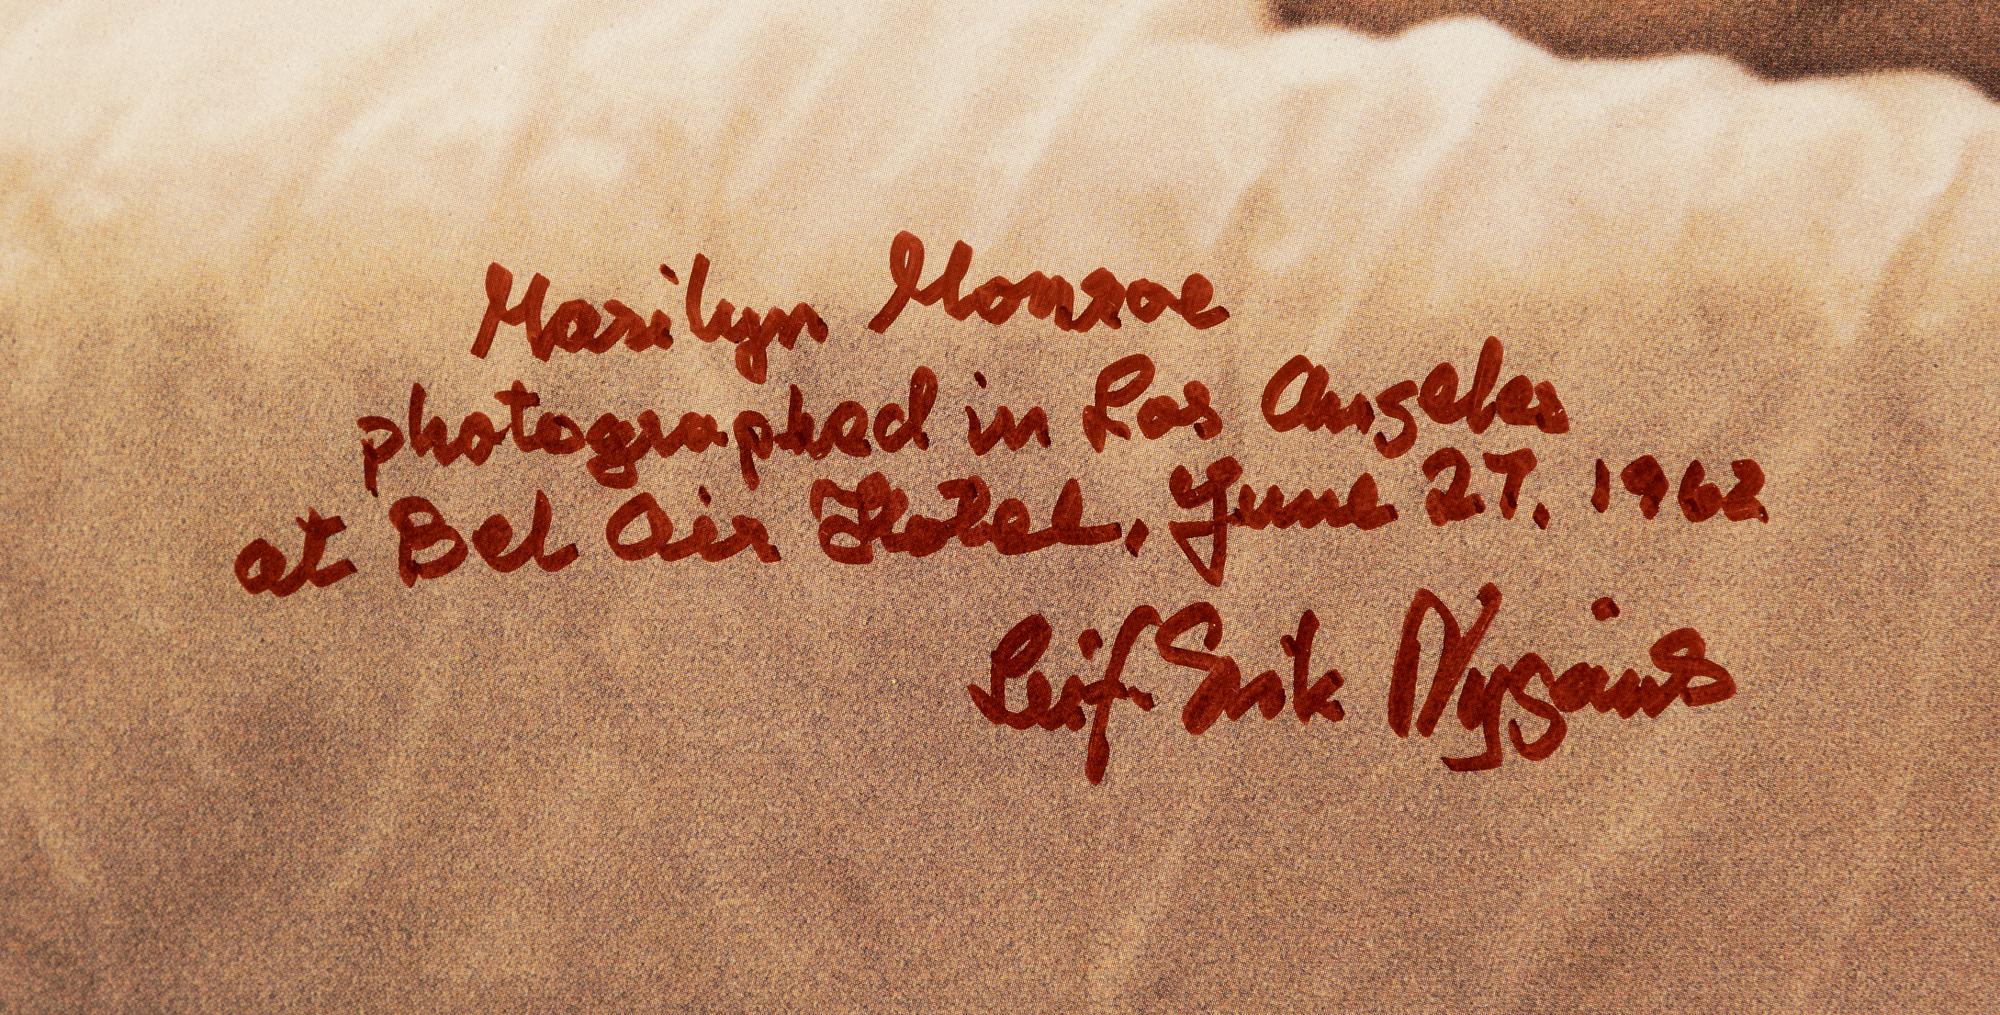 Marilyn Monroe
photographed in Los Angeles
at Bel Air Hotel, June 27, 1962
Leif Erik Nygårds